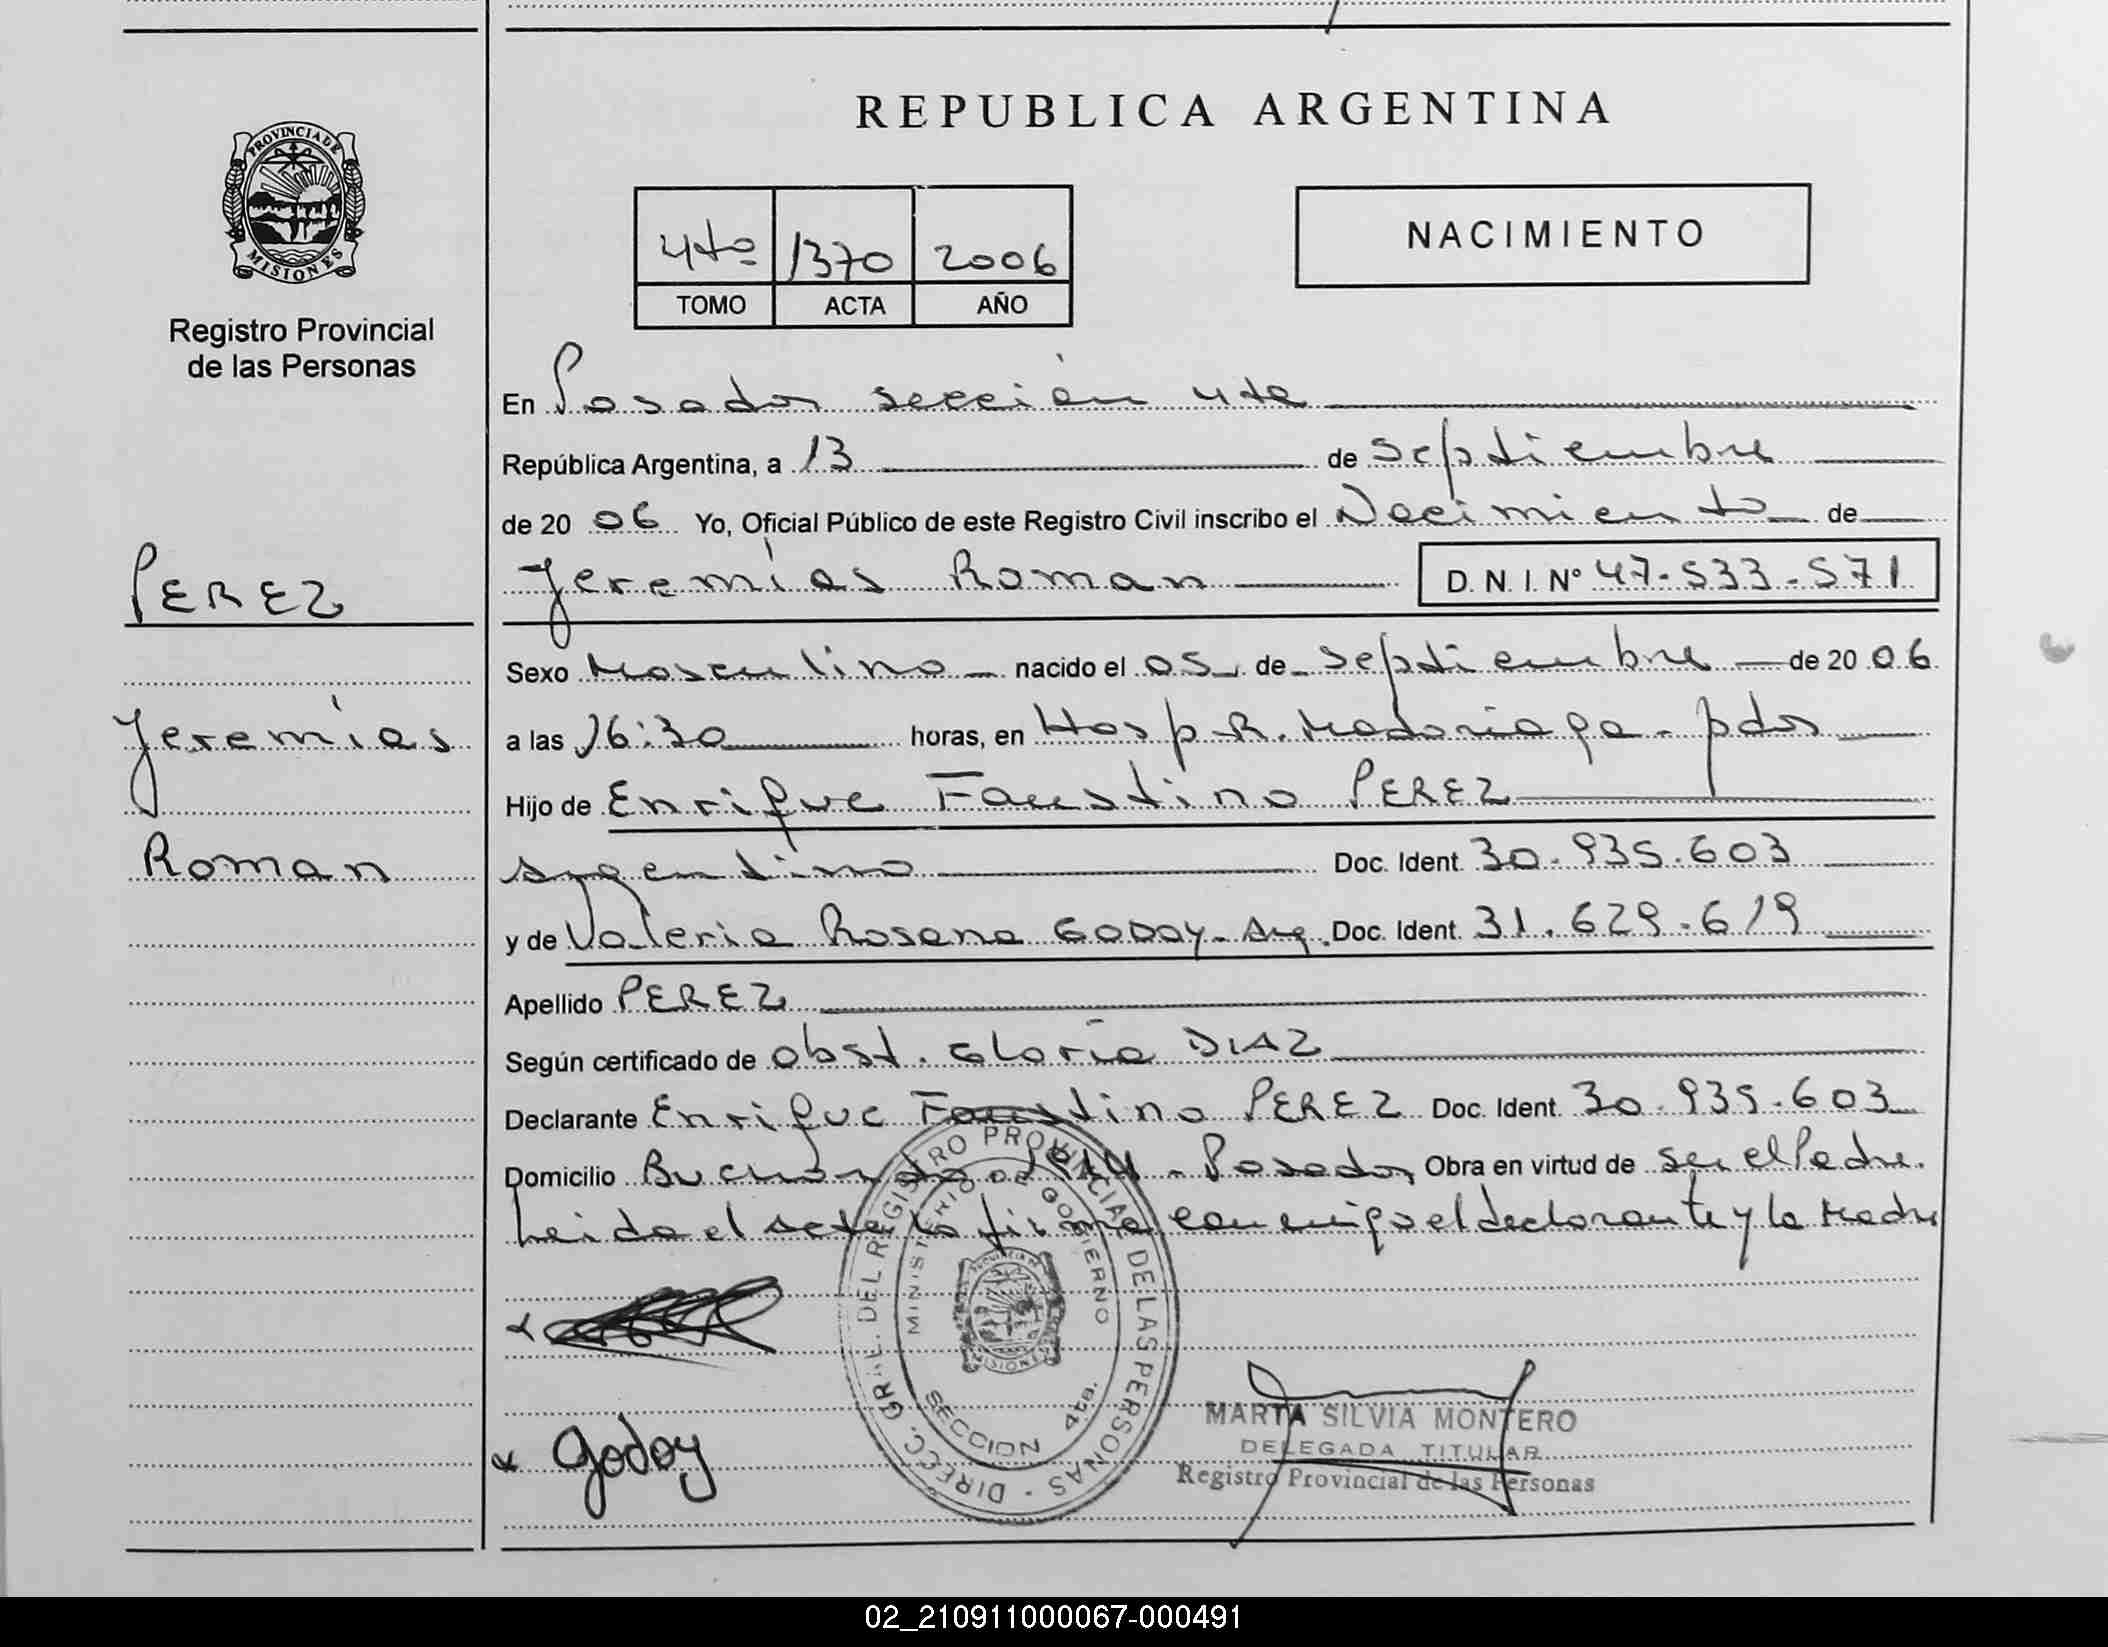 REPUBLICA ARGENTINA
PROVINCIA DE
MISIONES
Registro Provincial
de las Personas
4to 1370 2006
TOMO ACTA AÑO
NACIMIENTO
En Posadas sección 4ta
República Argentina, a 13 de septiembre
de 20 06 Yo, Oficial Público de este Registro Civil inscribo el Nacimiento de
Jeremías Roman D.N.I. Nº 47-533-571
PEREZ
Jeremías
Roman
Sexo Masculino nacido el 05 de septiembre de 20 06
a las 16:30 horas, en Hosp R. Madariaga - pdas
Hijo de Enrique Faustino PEREZ
argentino Doc. Ident. 30.935.603
y de Valeria Rosana GODOY - Arg. Doc. Ident. 31.629.619
Apellido PEREZ
Según certificado de obst. Gloria DIAZ
Declarante Enrique Faustino PEREZ Doc. Ident. 30.935.603
Domicilio Posadas Obra en virtud de ser el Padre.
Leida el acta la firma conmigo el declarante y la Madre
Godoy
DIREC. GRAL. DEL REGISTRO PROVINCIAL DE LAS PERSONAS
MINISTERIO DE GOBIERNO
MISIONES
SECCION 4ta.
MARTA SILVIA MONTERO
DELEGADA TITULAR
Registro Provincial de las Personas
02_210911000067-000491